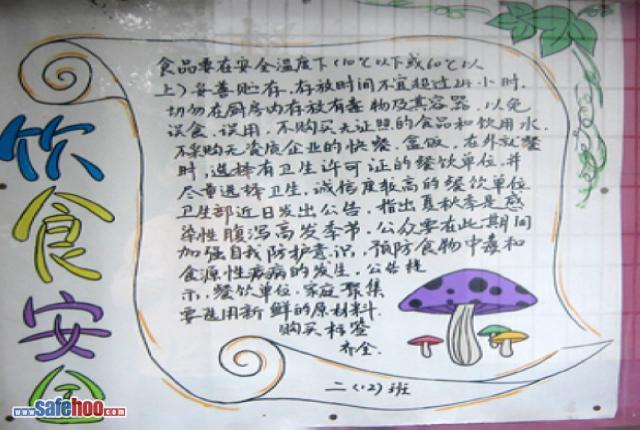 饮食安全
食品要在安全温度下(10℃以下或60℃以
上)妥善贮存,存放时间不宜超过24小时.
切勿在厨房内存放有毒物及其容器,以免
误食、误用.不购买无证照的食品和饮用水.
不采购无资质企业的快餐、盒饭,在外就餐
时,选择有卫生许可证的餐饮单位.并
尽量选择卫生,诚信度较高的餐饮单位.
卫生部近日发出公告,指出夏秋季是感
染性腹泻高发季节,公众要在此期间
加强自我防护意识,预防食物中毒和
食源性疾病的发生,公告提
示,餐饮单位、家庭聚集
要选用新鲜的原材料.
购买标签
齐全.
二(12)班
www.safehoo.com